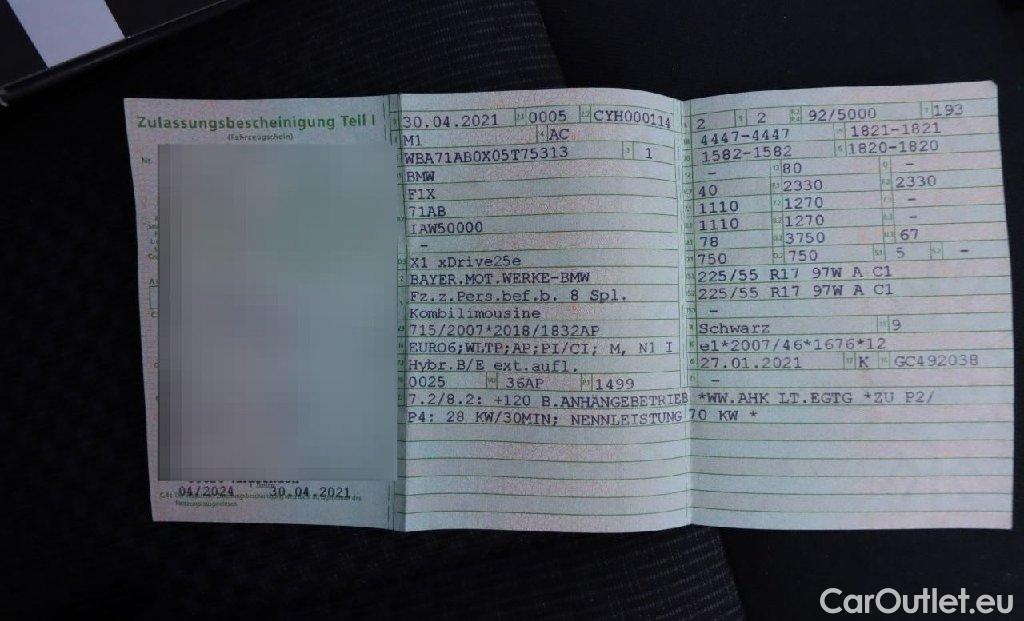 Zulassungsbescheinigung Teil I
(Fahrzeugschein)
Nr.
04/2024 30.04.2021
30.04.2021 0005 CYH000114
M1 AC
WBA71AB0X05T75313 1
BMW
F1X
71AB
IAW50000
–
X1 xDrive25e
BAYER.MOT.WERKE-BMW
Fz.z.Pers.bef.b. 8 Spl.
Kombilimousine
715/2007*2018/1832AP
EURO6;WLTP;AP;PI/CI; M, N1 I
Hybr.B/E ext.aufl.
0025 36AP 1499
7.2/8.2: +120 B.ANHÄNGEBETRIEB *WW.AHK LT.EGTG *ZU P2/
P4: 28 KW/30MIN; NENNLEISTUNG 70 KW *
2 2 92/5000 193
4447-4447 1821-1821
1582-1582 1820-1820
– 80 –
40 2330 2330
1110 1270 –
1110 1270 –
78 3750 67
750 750 5 –
225/55 R17 97W A C1
225/55 R17 97W A C1
–
Schwarz 9
e1*2007/46*1676*12
27.01.2021 K GC492038
–
CarOutlet.eu